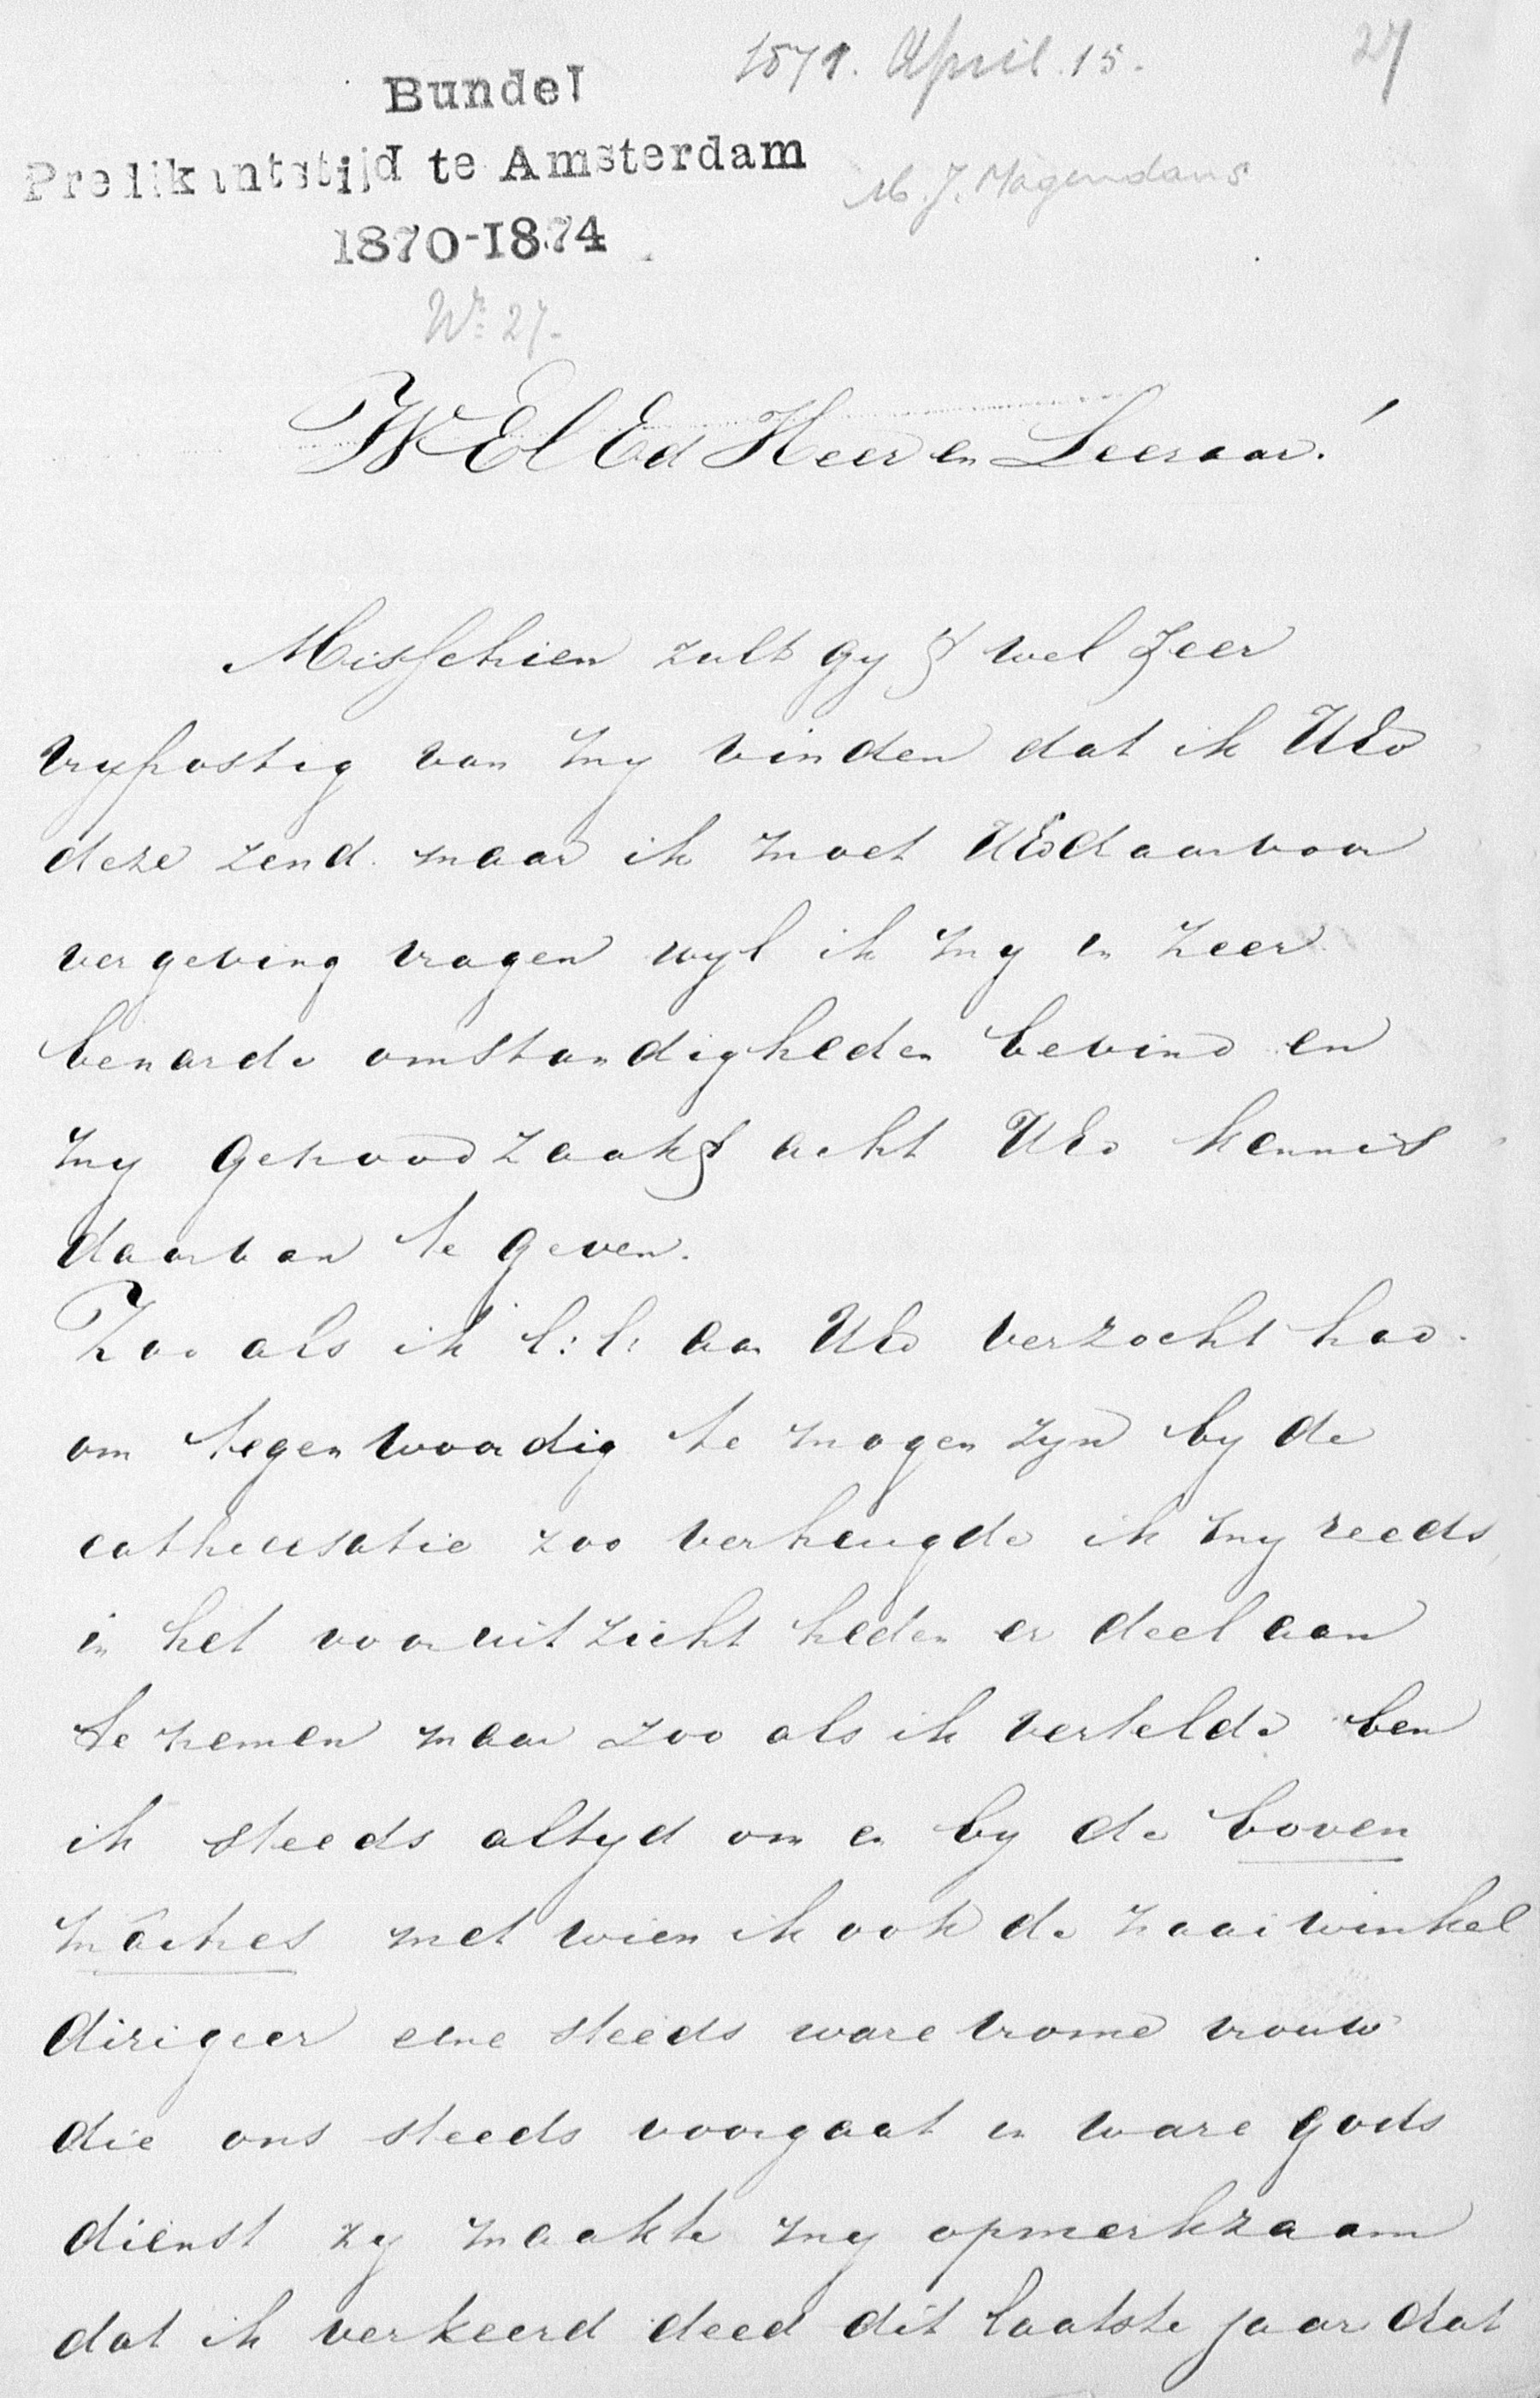 1871. April. 15.
27
Bundel
Predikantstijd te Amsterdam
1870-1874
M. J. Magendans
No. 27.
WelEd Heer en Leeraar!
Misschien zult gy 't wel zeer
vrypostig van my vinden dat ik UEd
deze zend. maar ik moet UEd daarvoor
vergeving vragen wyl ik my in zeer
benarde omstandigheden bevind en
my genoodzaakt acht UEd kennis
daarvan te geven.
Zoo als ik l:l: aan UEd verzocht had.
om tegenwoordig te mogen zyn by de
cathecisatie zoo verheugde ik my reeds
in het vooruitzicht heden er deel aan
te nemen maar zoo als ik vertelde ben
ik steeds altyd om en by de boven
met wien ik ook de naaiwinkel
dirigeer eene steeds ware vrome vrouw
die ons steeds voorgaat in ware gods
dienst zy maakte my opmerkzaam
dat ik verkeerd deed dit laatste jaar dat